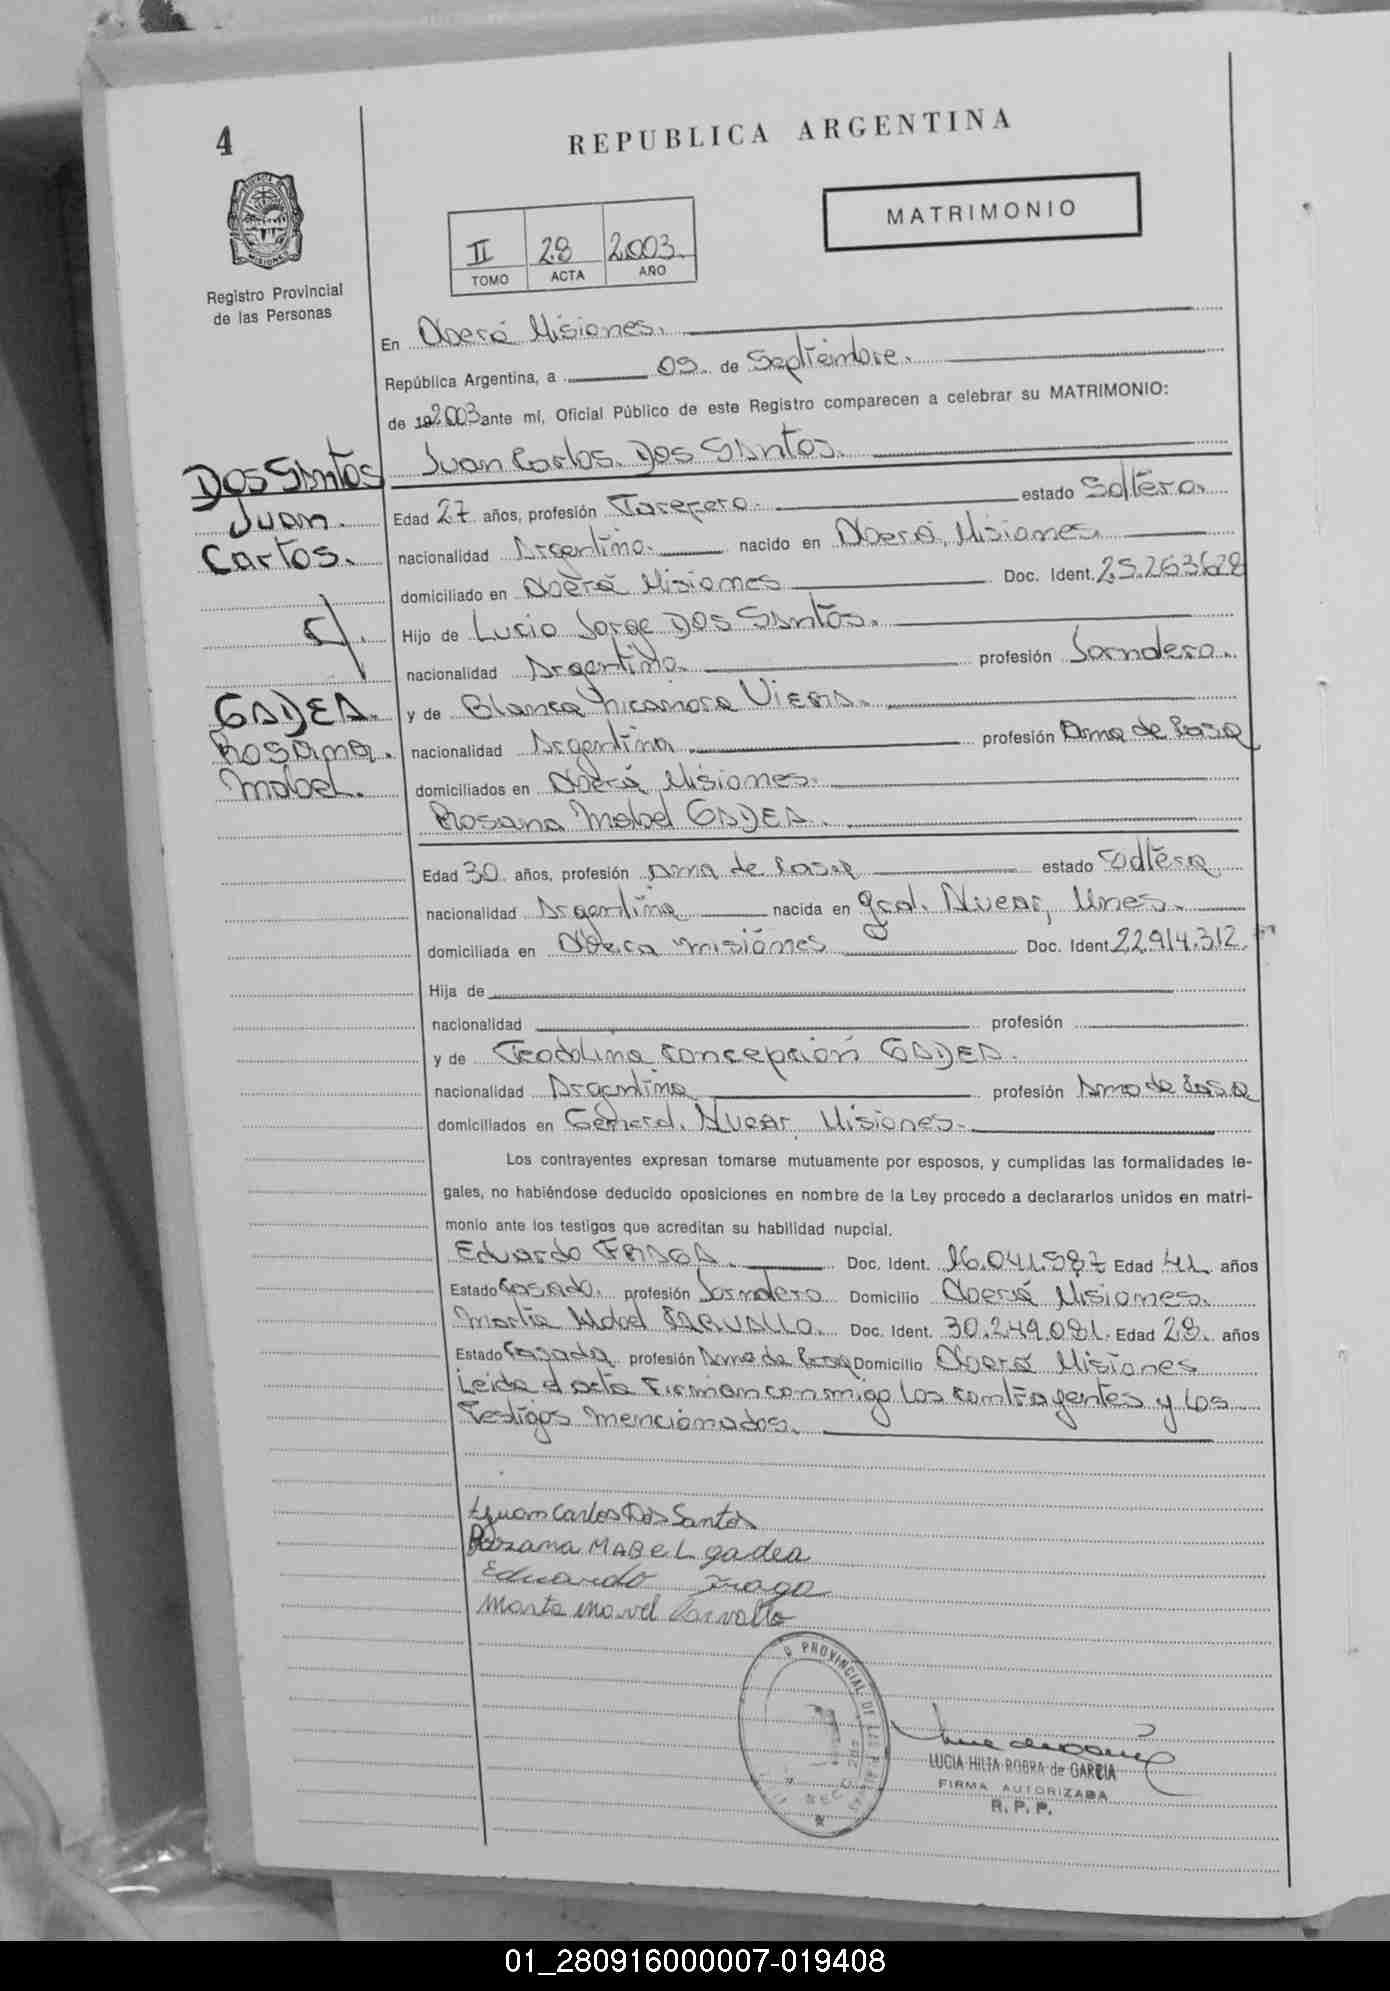 4
REPUBLICA ARGENTINA
MATRIMONIO
II 28 2003.
TOMO ACTA AÑO
Registro Provincial
de las Personas
En Oberá Misiones.
República Argentina, a 05. de Septiembre.
de 192003 ante mí, Oficial Público de este Registro comparecen a celebrar su MATRIMONIO:
DOS SANTOS
Juan.
Carlos.
c/.
GADEA.
Rosana.
Mabel.
Juan Carlos. DOS SANTOS.
Edad 27 años, profesión Tarefero. estado Soltero.
nacionalidad Argentino. nacido en Oberá, Misiones.
domiciliado en Oberá Misiones Doc. Ident. 25.263.628
Hijo de Lucio Jorge DOS SANTOS.
nacionalidad Argentino. profesión Jornalero.
y de Blanca Nicanora VIERA.
nacionalidad Argentina profesión Ama de Casa
domiciliados en Oberá Misiones.
Rosana Mabel GADEA.
Edad 30. años, profesión Ama de Casa estado Soltera
nacionalidad Argentina nacida en Gral. Alvear, Mnes.
domiciliada en Oberá Misiones Doc. Ident. 22.914.312.
Hija de
nacionalidad profesión
y de Teodolina Concepción GADEA.
nacionalidad Argentina profesión Ama de Casa
domiciliados en General. Alvear, Misiones.
Los contrayentes expresan tomarse mutuamente por esposos, y cumplidas las formalidades le-
gales, no habiéndose deducido oposiciones en nombre de la Ley procedo a declararlos unidos en matri-
monio ante los testigos que acreditan su habilidad nupcial.
Eduardo FRAGA. Doc. Ident. 16.041.587 Edad 41 años
Estado Casado. profesión Jornalero Domicilio Oberá Misiones.
Marta Mabel CARVALLO. Doc. Ident. 30.249.081. Edad 28. años
Estado Casada profesión Ama de Casa Domicilio Oberá Misiones
Leida el acta Firman conmigo Los contrayentes y Los
Testigos mencionados.
Juan Carlos Dos Santos
Rozana MABEL gadea
Eduardo Fraga
Marta mavel Carvallo
PROVINCIAL DE LAS
LUCIA HILTA ROBRA de GARCIA
FIRMA AUTORIZADA
R. P. P.
01_280916000007-019408